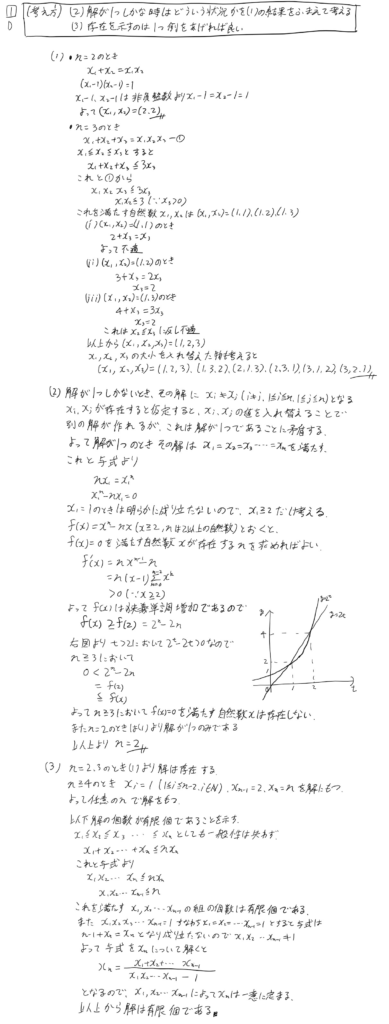 1 (考え方) (2) 解が1つしかない時はどういう状況かを(1)の結果をふまえて考える
D (3) 存在を示すのは1つ例をあげれば良い
(1) • n=2のとき
x₁+x₂=x₁x₂
(x₁-1)(x₂-1)=1
x₁-1, x₂-1は非負整数より x₁-1=x₂-1=1
よって(x₁,x₂)=(2,2)
• n=3のとき
x₁+x₂+x₃=x₁x₂x₃ —①
x₁≦x₂≦x₃とすると
x₁+x₂+x₃≦3x₃
これと①から
x₁x₂x₃≦3x₃
x₁x₂≦3 (∵x₃>0)
これを満たす自然数x₁,x₂は(x₁,x₂)=(1,1),(1,2),(1,3)
(i) (x₁,x₂)=(1,1)のとき
2+x₃=x₃
よって不適
(ii) (x₁,x₂)=(1,2)のとき
3+x₃=2x₃
x₃=3
(iii) (x₁,x₂)=(1,3)のとき
4+x₃=3x₃
x₃=2
これはx₂≦x₃に反し不適
以上から(x₁,x₂,x₃)=(1,2,3)
x₁,x₂,x₃の大小を入れ替えた解も考えると
(x₁,x₂,x₃)=(1,2,3),(1,3,2),(2,1,3),(2,3,1),(3,1,2),(3,2,1)
(2) 解が1つしかないとき、その解にxᵢ≠xⱼ(i≠j, 1≦i≦n, 1≦j≦n)となる
xᵢ,xⱼが存在すると仮定すると、xᵢ,xⱼの値を入れ替えることで
別の解が作れるが、これは解が1つであることに矛盾する。
よって解が1つのときその解はx₁=x₂=x₃…=xₙを満たす。
これと与式より
nx₁=x₁ⁿ
x₁ⁿ-nx₁=0
x₁=1のときは明らかに成り立たないので、x₁≧2だけ考える。
f(x)=xⁿ-nx (x≧2, nは2以上の自然数)とおくと、
f(x)=0を満たす自然数xが存在するnを求めればよい。
f'(x)=nxⁿ⁻¹-n
=n(x-1)Σxᵏ
>0 (∵x≧2)
よってf(x)は狭義単調増加であるので
f(x)≧f(2)=2ⁿ-2n
右図よりt>2において2ᵗ-2t>0なので
n≧3において
0<2ⁿ-2n
=f(2)
≦f(x)
よってn≧3においてf(x)=0を満たす自然数xは存在しない。
またn=2のときは(1)より解が1つのみである
以上より n=2
(3) n=2,3のとき(1)より解は存在する。
n≧4のとき xᵢ=1 (1≦i≦n-2, i∈N), xₙ₋₁=2, xₙ=nを解にもつ。
よって任意のnで解をもつ。
以下解の個数が有限個であることを示す。
x₁≦x₂≦x₃…≦xₙとしても一般性は失わず
x₁+x₂…+xₙ≦nxₙ
これと与式より
x₁x₂…xₙ≦nxₙ
x₁x₂…xₙ₋₁≦n
これを満たすx₁,x₂…xₙ₋₁の組の個数は有限個である。
またx₁x₂x₃…xₙ₋₁=1 すなわちx₁=x₂=…xₙ₋₁=1とすると与式は
n-1+xₙ=xₙとなり成り立たないのでx₁x₂…xₙ₋₁≠1
よって与式をxₙについて解くと
xₙ=(x₁+x₂+…xₙ₋₁)/(x₁x₂…xₙ₋₁-1)
となるので、x₁,x₂…xₙ₋₁によってxₙは一意に定まる。
以上から解は有限個である。